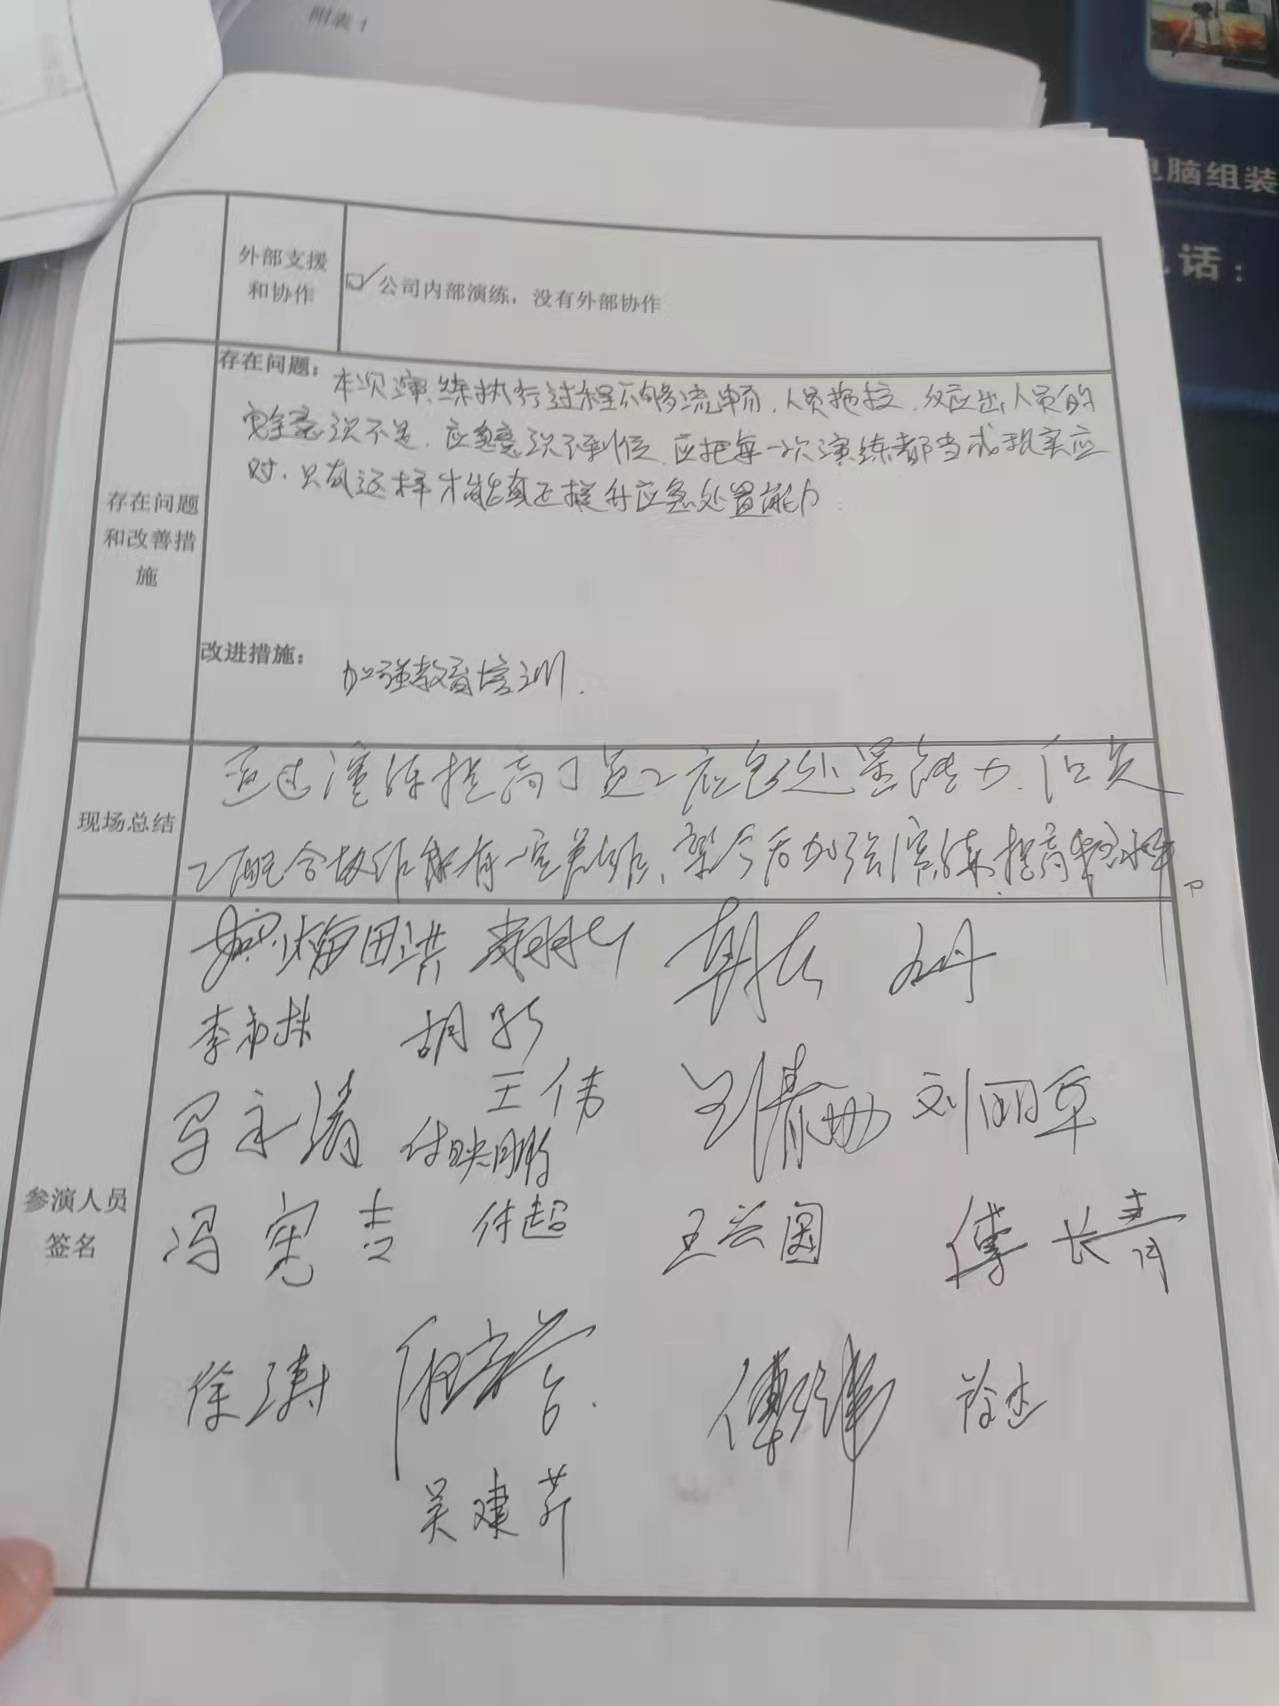 附表1
电脑组装
话：
外部支援
和协作
☑公司内部演练，没有外部协作
存在问题
和改善措
施
存在问题：本次演练执行过程不够流畅，人员拖拉，反应出人员的
安全意识不足，应急意识不到位，应把每一次演练都当成现实应
对，只有这样才能真正提升应急处置能力
改进措施：加强教育培训.
现场总结
通过演练提高了员工应急处置能力，但员
工配合协作能有一定差距，望今后加强演练，提高
参演人员
签名
田洪
胡
马永涛 王伟 刘青 刘明军
付映鹏
冯宪吉 付超 王兴国 傅长青
徐涛 傅 徐杰
吴建芹